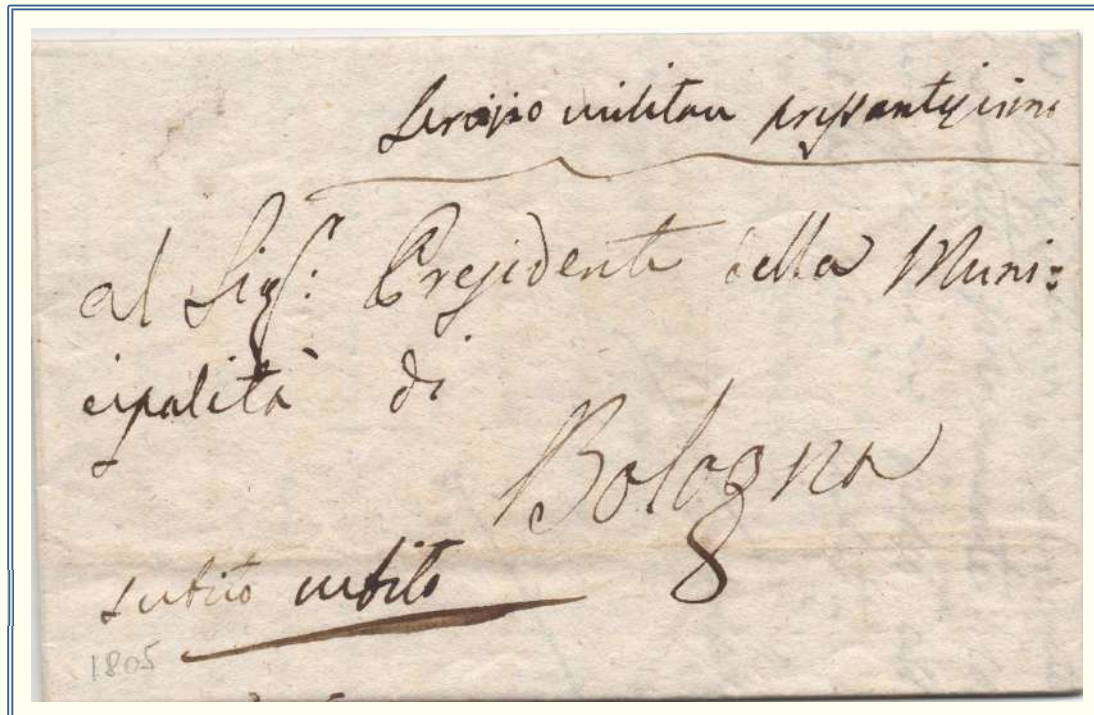 Servizio militare pressantissimo
al Sigr: Presidente della Muni:
cipalità di
Bologna
8
subito subito
1805